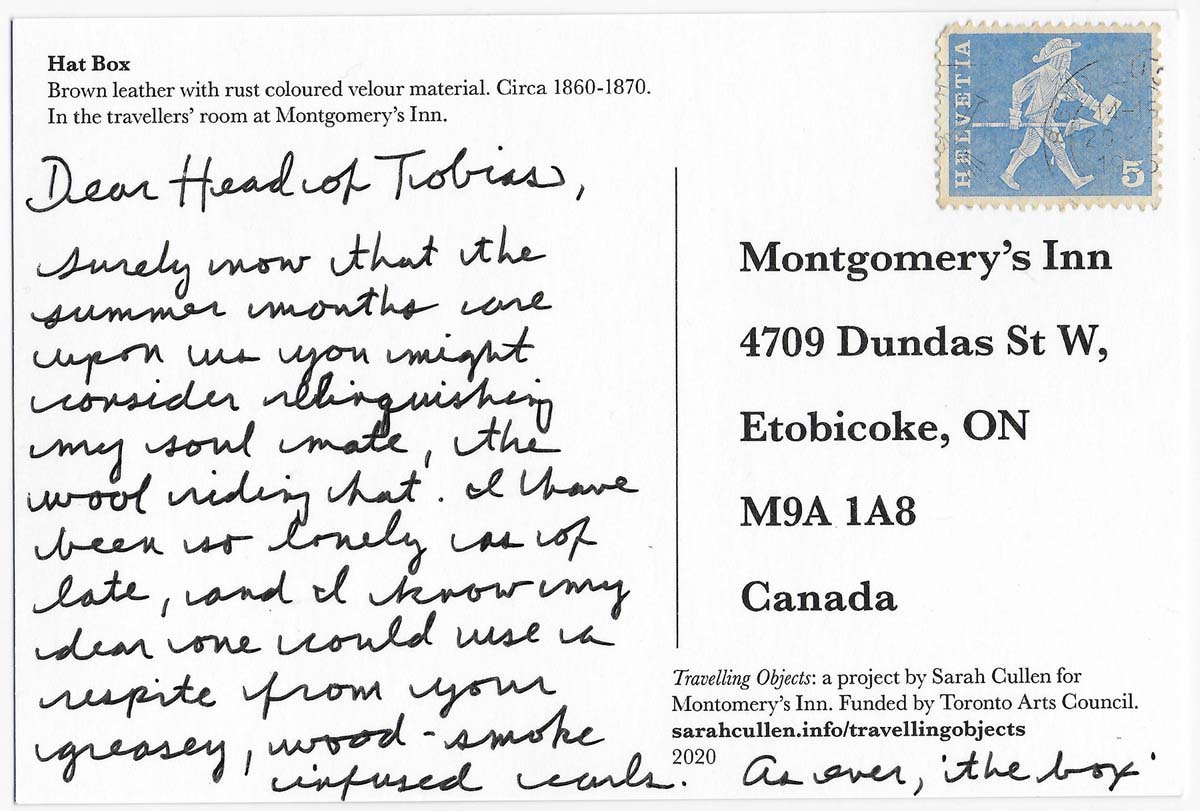 Hat Box
Brown leather with rust coloured velour material. Circa 1860-1870.
In the travellers' room at Montgomery's Inn.
Dear Head of Tobias,
surely now that the
summer months are
upon us you might
consider relinquishing
my soul mate, the
wool riding hat. I have
been so lonely as of
late, and I know my
dear one could use a
respite from your
greasey, wood-smoke
infused curls.
As ever, 'the box'
HELVETIA
5
Montgomery's Inn
4709 Dundas St W,
Etobicoke, ON
M9A 1A8
Canada
Travelling Objects: a project by Sarah Cullen for
Montomery's Inn. Funded by Toronto Arts Council.
sarahcullen.info/travellingobjects
2020